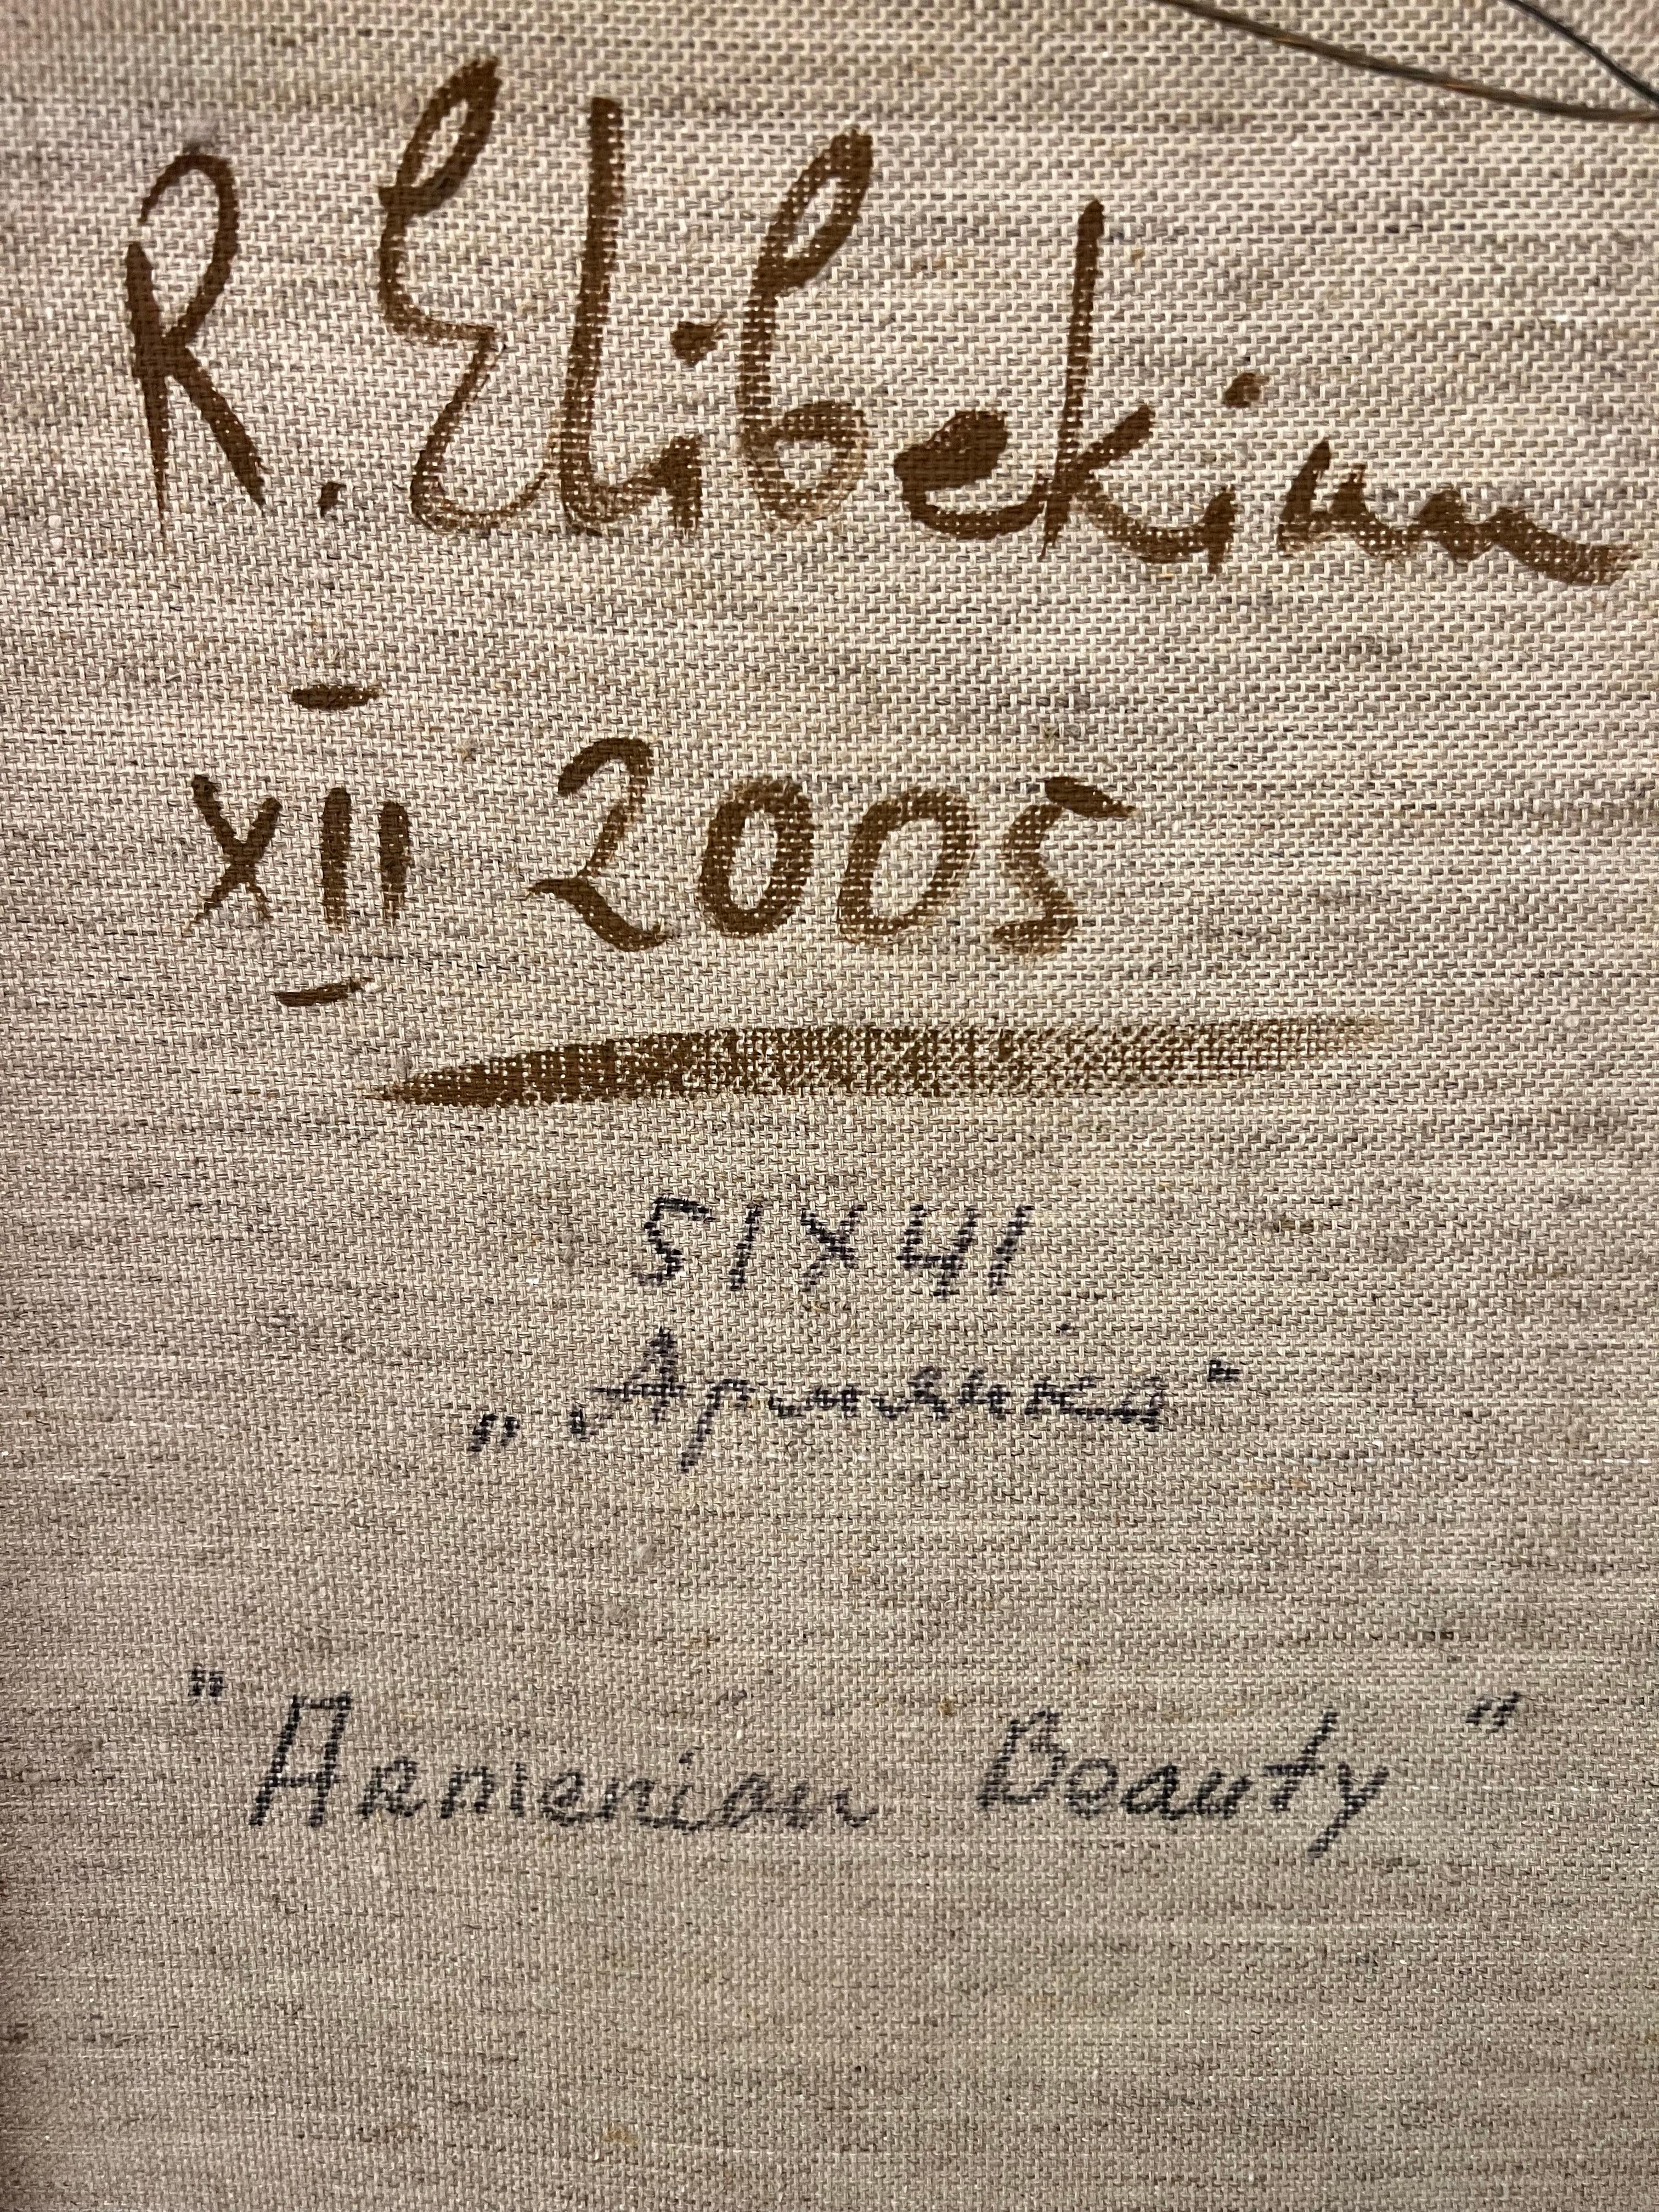 R. Elibekian
XII 2005
51x41
„Армянка"
"Armenian Beauty"